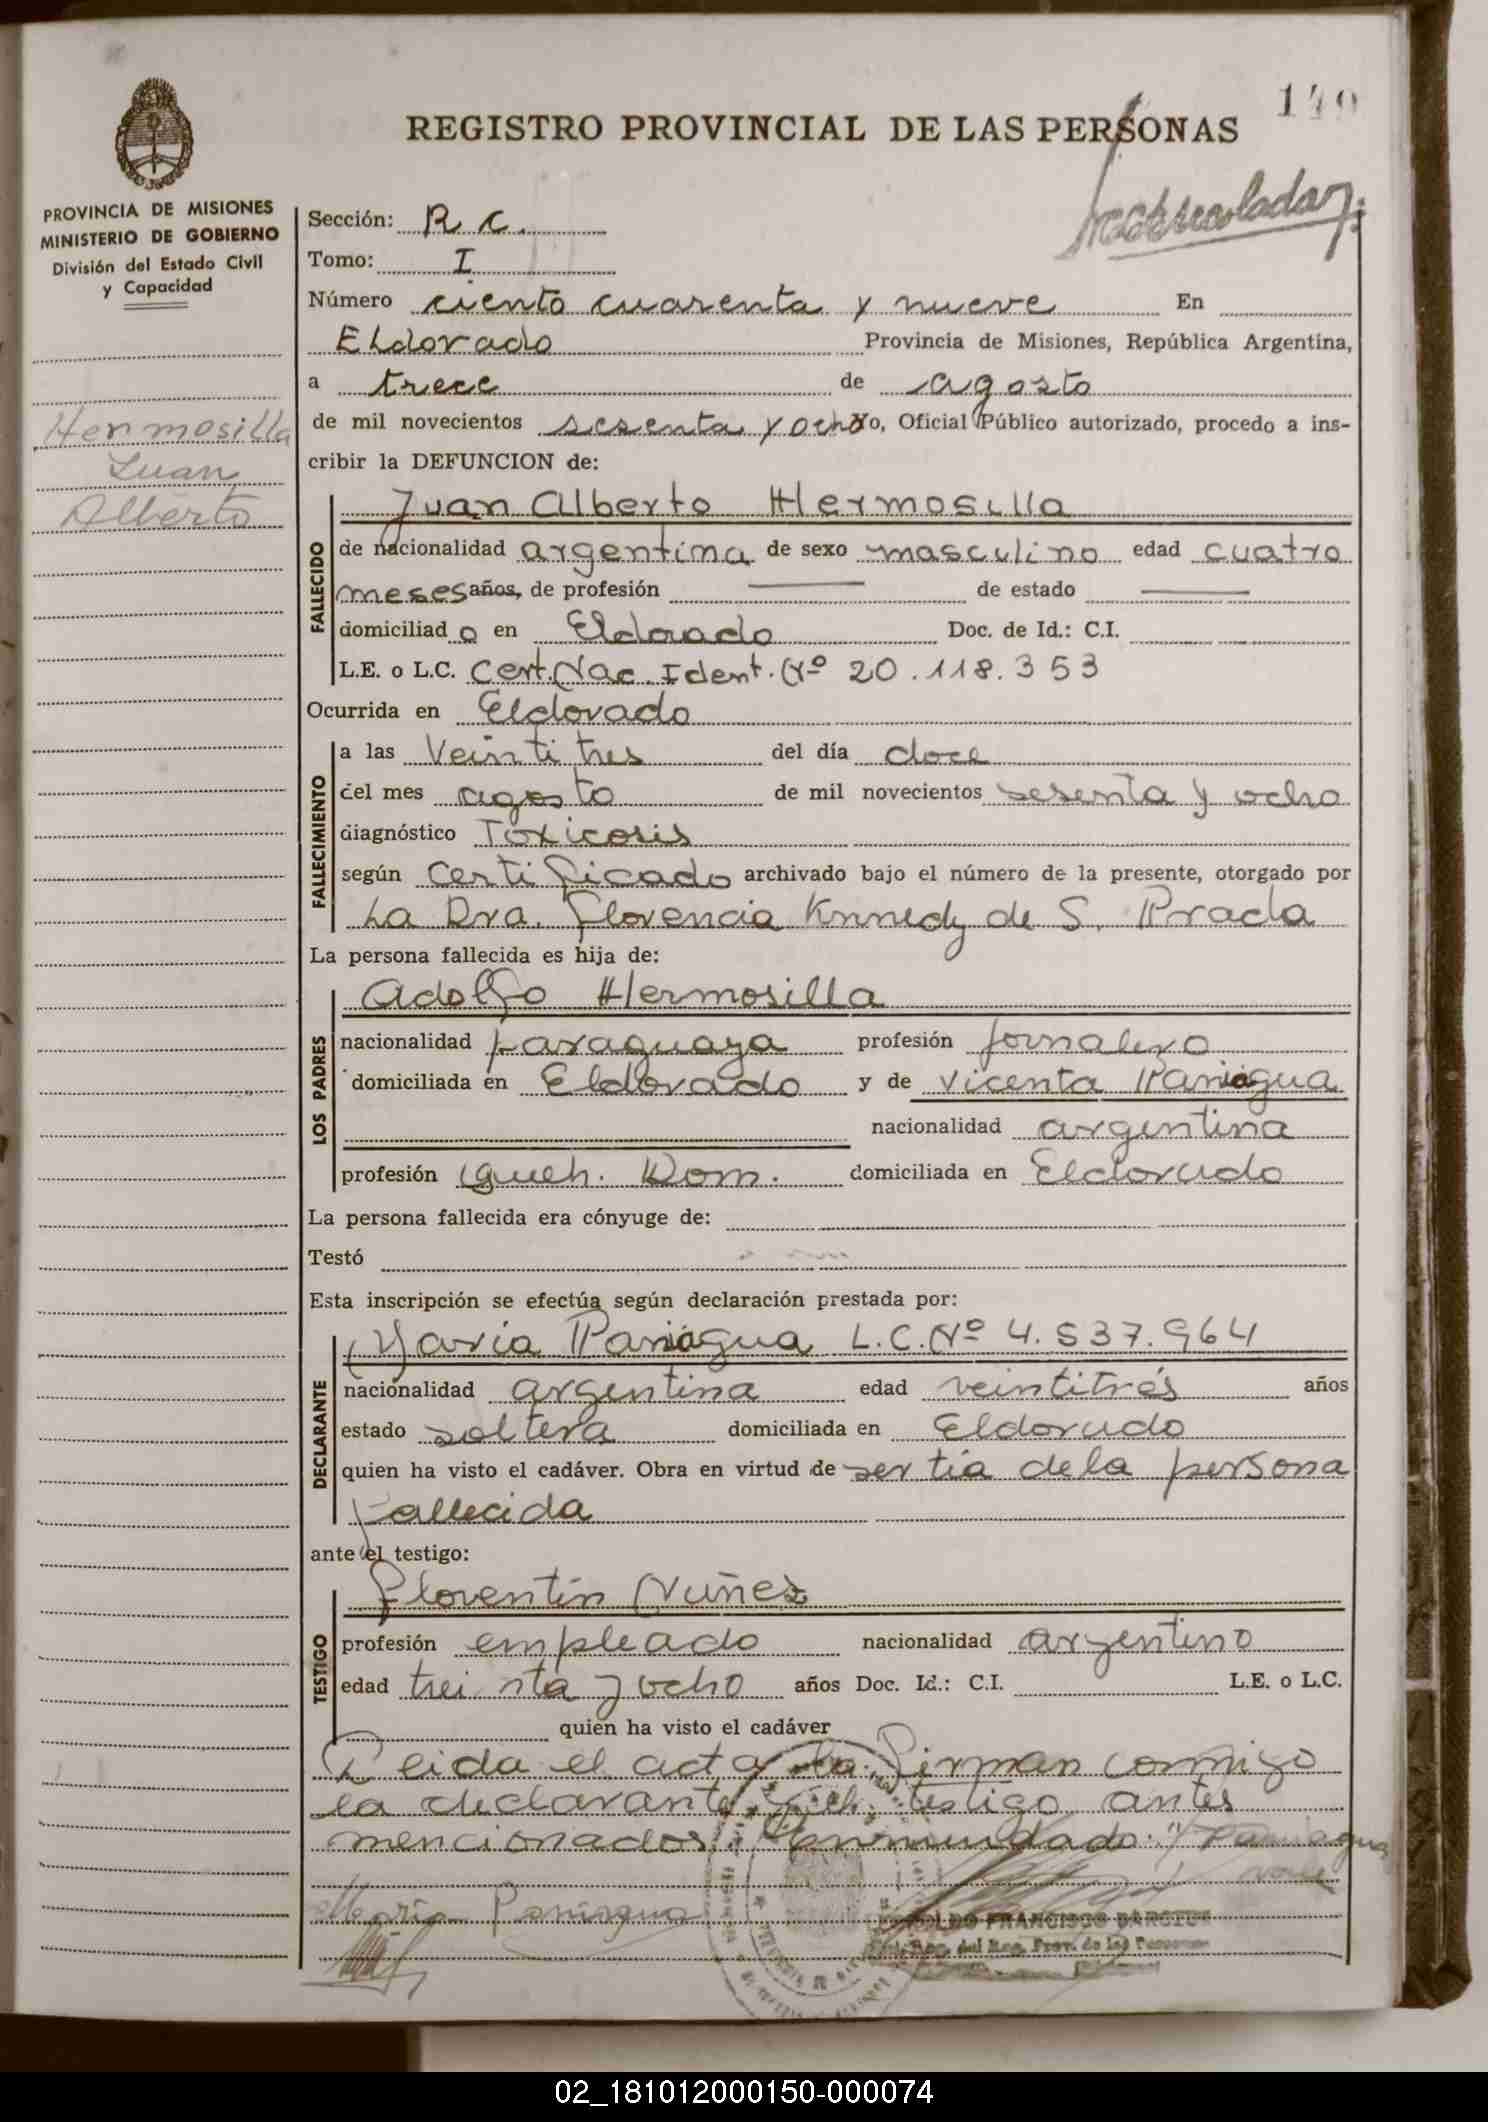 149
REGISTRO PROVINCIAL DE LAS PERSONAS
PROVINCIA DE MISIONES
MINISTERIO DE GOBIERNO
División del Estado Civil
y Capacidad
Hermosilla
Juan
Alberto
Sección: R C.
Tomo: I
Número ciento cuarenta y nueve En
Eldorado Provincia de Misiones, República Argentina,
a trece de agosto
de mil novecientos sesenta y ocho yo, Oficial Público autorizado, procedo a ins-
cribir la DEFUNCION de:
FALLECIDO
Juan Alberto Hermosilla
de nacionalidad argentina de sexo masculino edad cuatro
meses años, de profesión — de estado —
domiciliad o en Eldorado Doc. de Id.: C.I.
L.E. o L.C. Cert. Nac. Ident. Nº 20.118.353
Ocurrida en Eldorado
FALLECIMIENTO
a las Veintitres del día doce
del mes agosto de mil novecientos sesenta y ocho
diagnóstico Toxicosis
según certificado archivado bajo el número de la presente, otorgado por
La Dra. Florencia Knnedy de S. Prada
La persona fallecida es hija de:
LOS PADRES
Adolfo Hermosilla
nacionalidad paraguaya profesión jornalero
domiciliada en Eldorado y de Vicenta Paniagua
nacionalidad argentina
profesión Queh. Dom. domiciliada en Eldorado
La persona fallecida era cónyuge de:
Testó
Esta inscripción se efectúa según declaración prestada por:
DECLARANTE
María Paniagua L.C. Nº 4.537.964
nacionalidad argentina edad veintitrés años
estado soltera domiciliada en Eldorado
quien ha visto el cadáver. Obra en virtud de ser tia de la persona
fallecida
ante el testigo:
TESTIGO
Florentín Nuñez
profesión empleado nacionalidad argentino
edad treinta y ocho años Doc. Id.: C.I. L.E. o L.C.
quien ha visto el cadáver
Leida el acta la firman conmigo
la declarante y el testigo antes
mencionados. Enmendado: "Paniagua
vale
María Paniagua
FRANCISCO
del Reg. Prov. de las Personas
02_181012000150-000074